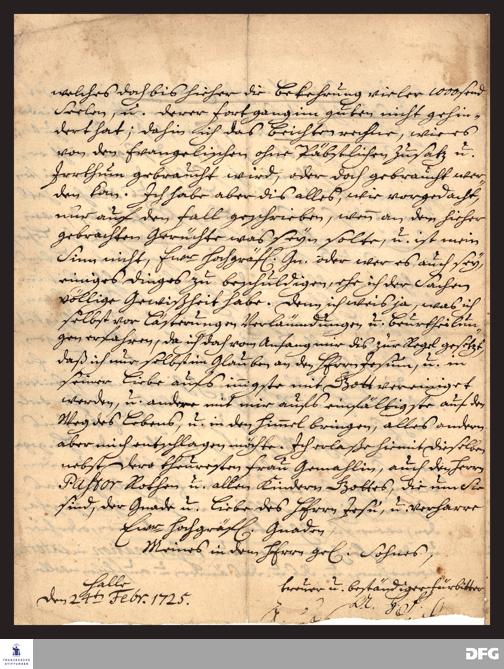 welches doch bis hieher die Bekehrung vieler 1000send
Seelen, u. derer Fortgang im guten nicht gehin-
dert hat; dahin ich das Beichten rechne, wie es
von den Evangelischen ohne Päbstlichen Zusatz u.
Irrthum gebraucht wird, oder doch gebraucht wer-
den kan. Ich habe aber dis alles, wie vorgedacht,
nur auf den fall geschrieben, wen an den hieher
gebrachten Gerüchte was seyn solte, u. ist mein
Sinn nicht, Ewr. Hochgräfl. Gn. oder wer es auch sey,
einiges dinges zu beschuldigen, ehe ich der Sachen
völlige Gewißheit habe. Denn ich weis ja, was ich
selbst vor Lästerungen, Verläumdungen u. beurtheilun-
gen erfahren, da ich doch von Anfang mir dis zur Regel gesetzt,
daß ich nur selbst im Glauben an den HErrn Jesum, u. in
seiner Liebe aufs innigste mit Gott vereiniget
werden, u. andere mit mir aufs einfältigste auf den
Weg des Lebens, u. in den Himel bringen, alles andern
aber mich entschlagen möchte. Ich erlaße hiemit dieselben
nebst Dero theuresten Frau Gemahlin, auch den Herrn
Pastor Rothen u. allen Kindern Gottes, die um Sie
sind, der Gnade u. Liebe des HErrn Jesu, u. verharre
Ewr. Hochgräfl. Gnaden,
Meines in dem HErrn gel. Sohnes,
Halle
den 24ten Febr. 1725.
treuer u. beständiger Fürbitter
FRANCKESCHE STIFTUNGEN
DFG